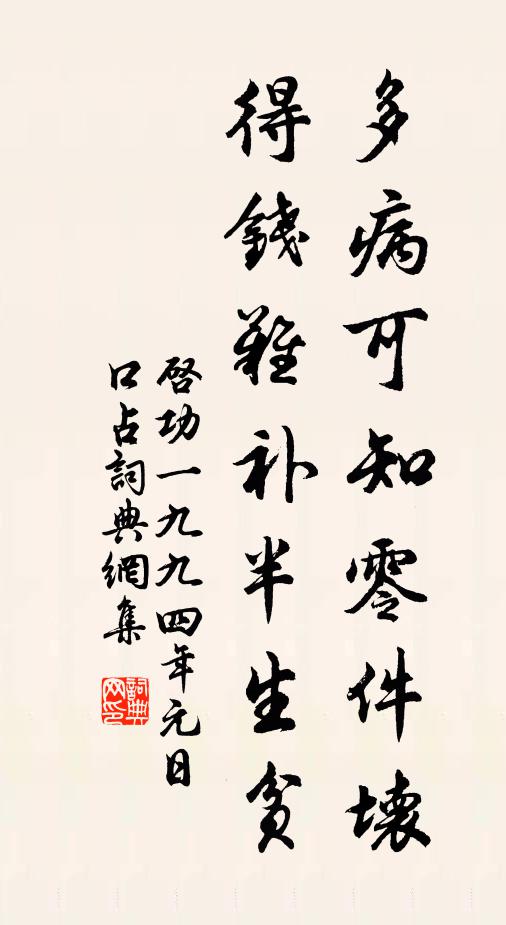 多病可知零件壞
得錢難补半生貧
啓功一九九四年元日
口占詞典網集
詞典
网印